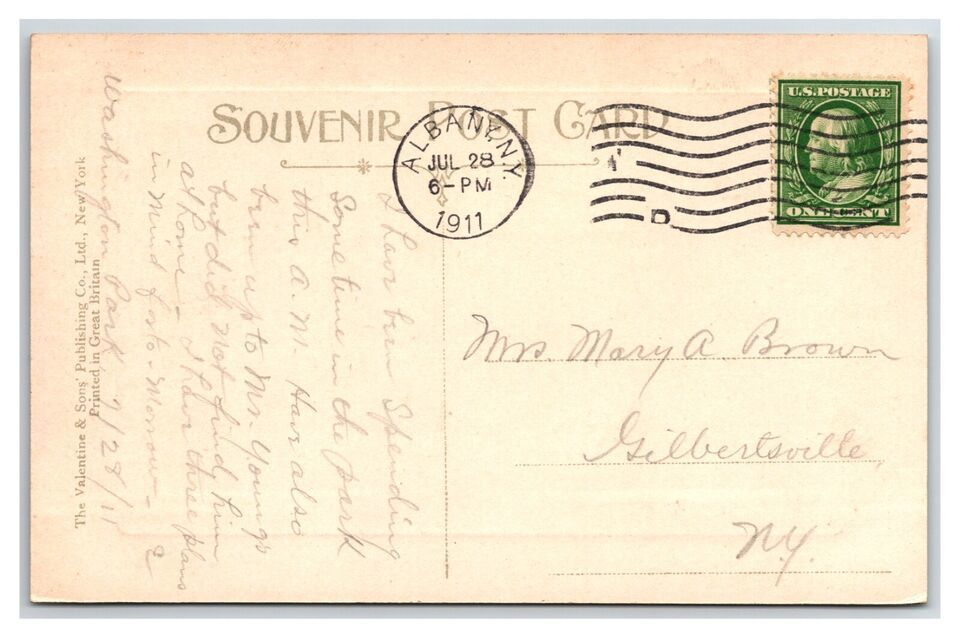 SOUVENIR POST CARD
ALBANY, N.Y.
JUL 28
6-PM
1911
D
U.S. POSTAGE
ONE CENT
Washington Park 7/28/11
I have been Spending
Sometime in the park
this A.M. Have also
been up to Mr. Youngs
but did not find him
at home - I have three plans
in mind for to-Morrow -
Mrs. Mary A. Brown
Gilbertsville,
N.Y.
The Valentine & Sons' Publishing Co., Ltd., New York
Printed in Great Britain